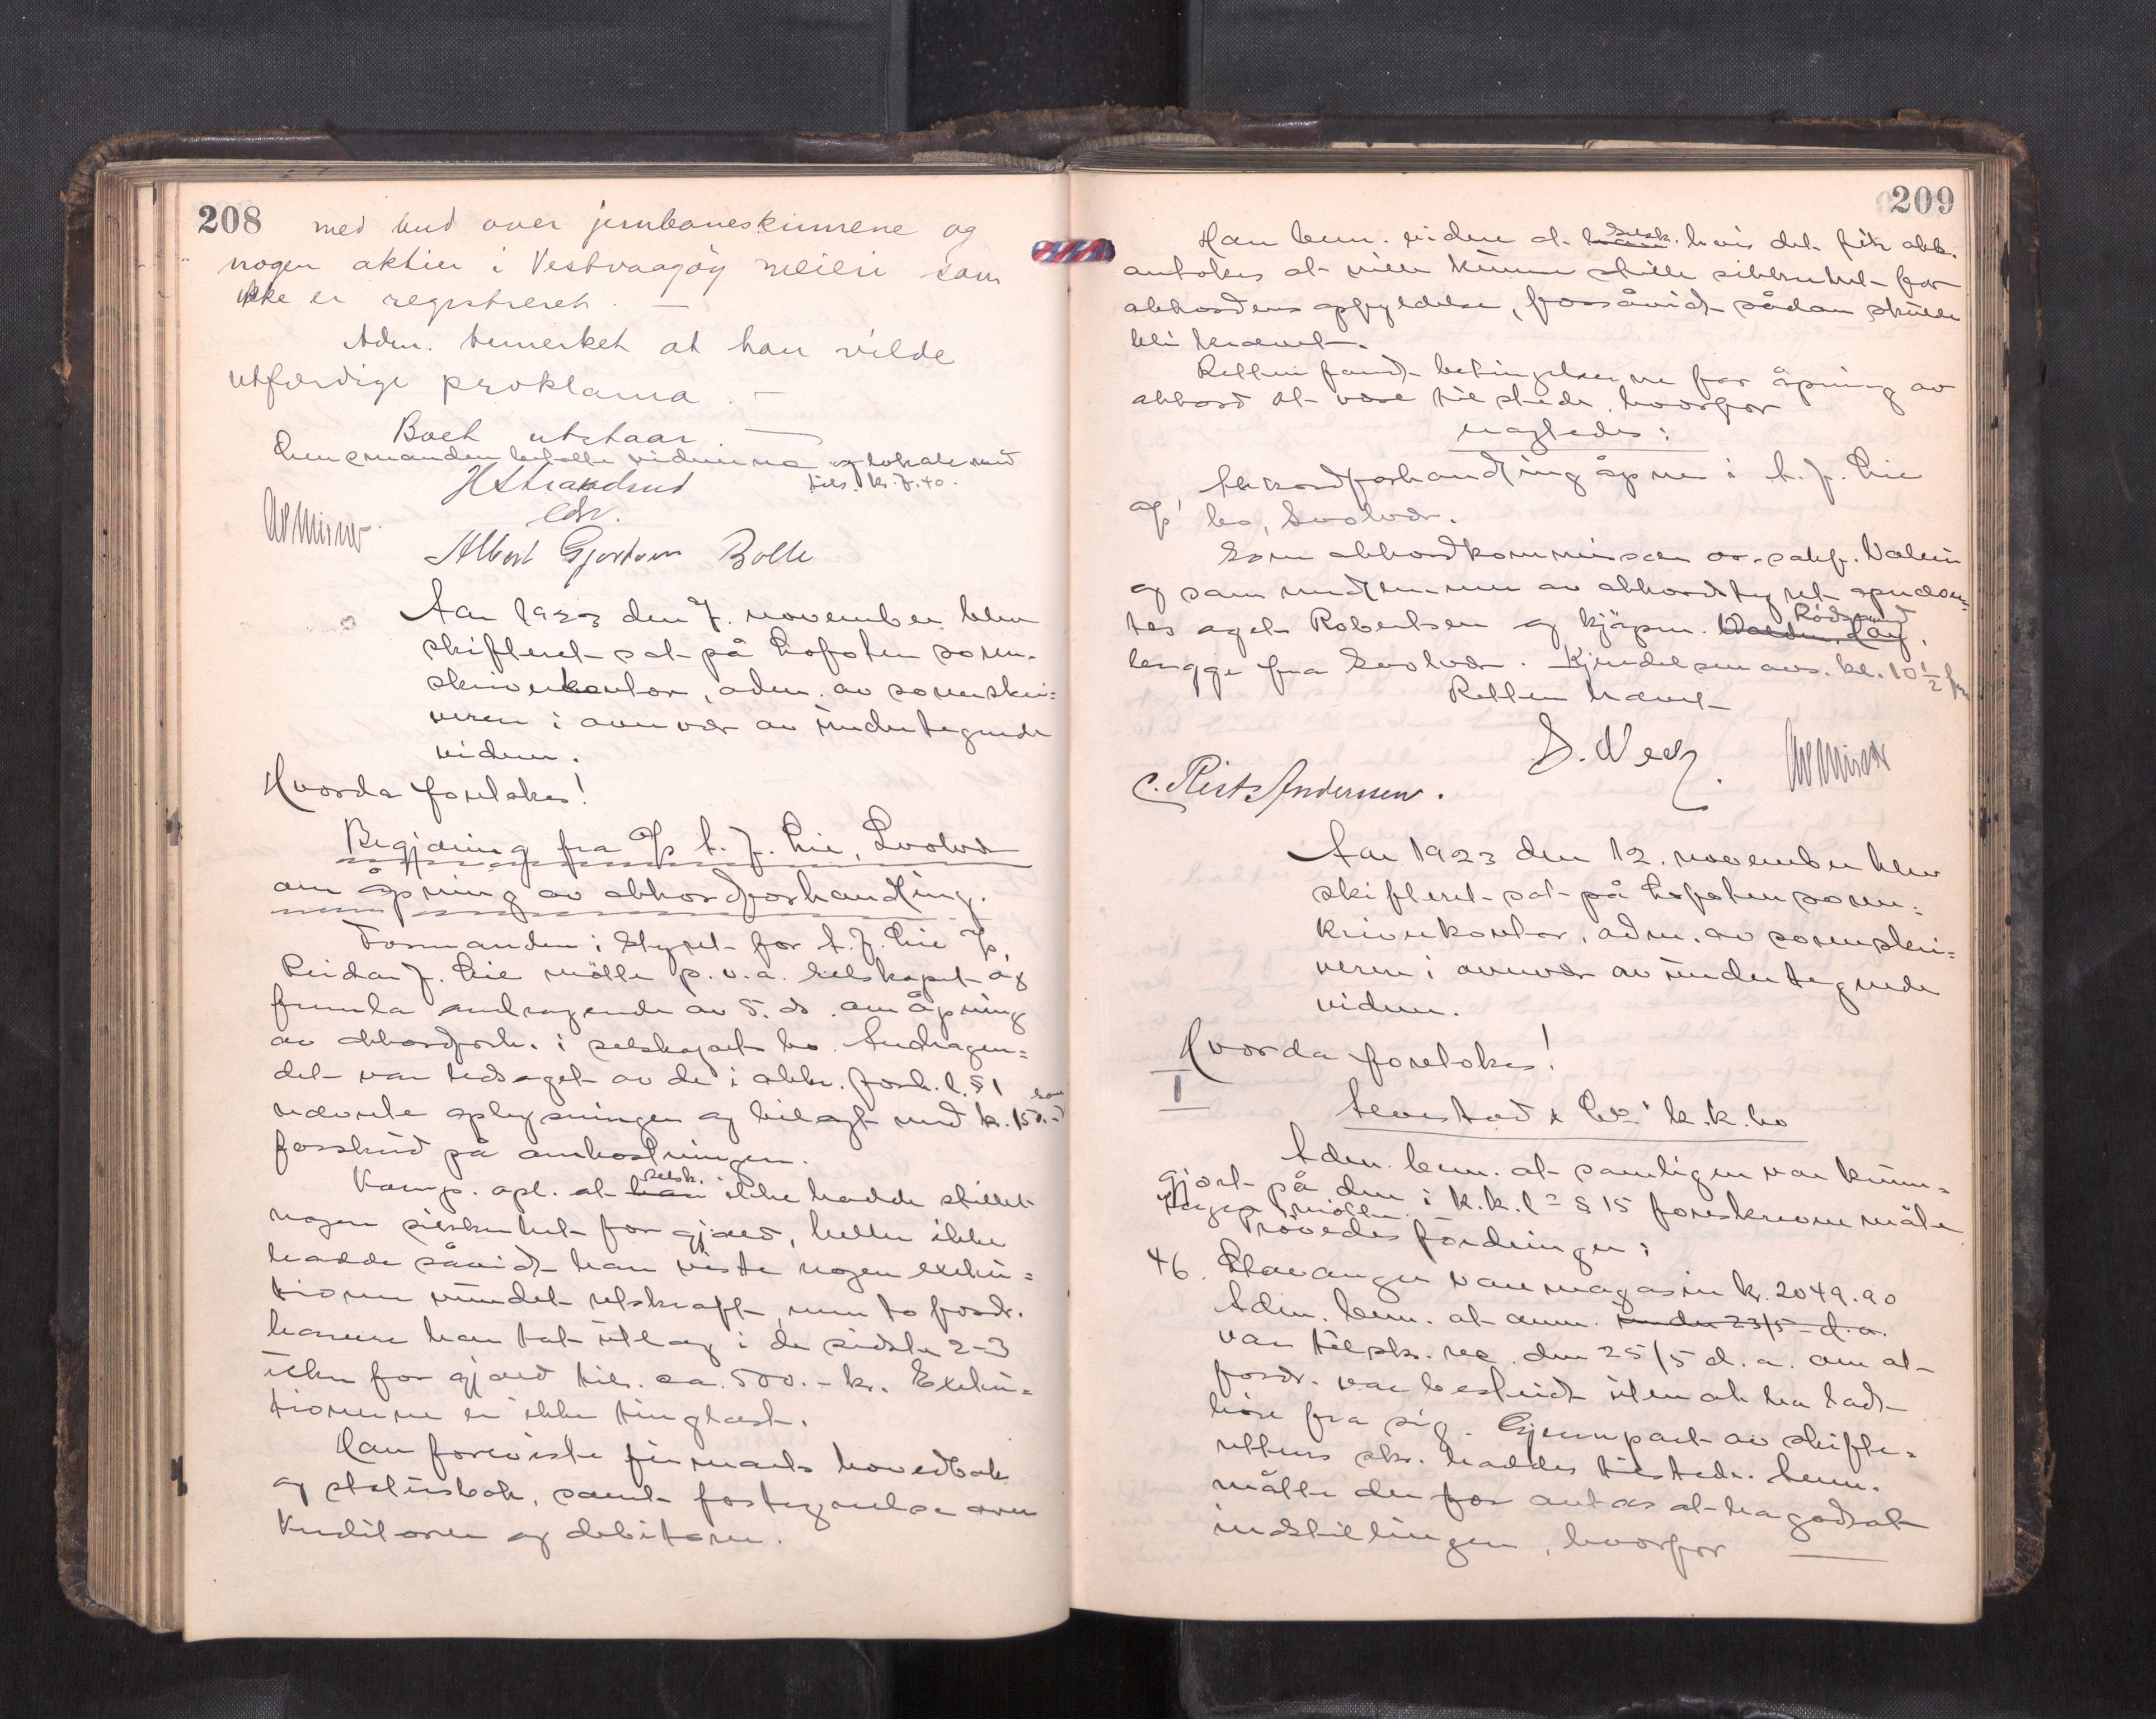 208
med bud over jernbaneskinnene og
nogen aktier i Vestvaagøy meieri som
ikke er registreret. —
Adm. bemerket at han vilde
utfærdige proklama. —
Boet utstaar. —
Lensmanden betalte vidnerne og lokale med
tils. kr. 7.40.
H Strandrud
edv.
Albert Gjertsen Bolle
Aar 1923 den 7. november blev
skifteret sat på Lofoten soren-
skriverkontor, adm. av sorenskri-
veren i overvær av undertegnede
vidner.
Hvorda foretokes!
Begjæring fra A/S A. J. Lie, Svolvær
om åpning av akkordforhandling.
Formanden i styret for A. J. Lie A/S
Reidar J. Lie møtte p. v. a. selskapet og
fremla andragende av 5. ds. om åpning
av akkordforh. i selskapets bo. Andragen-
det var ledsaget av de i akk. forh. l. § 1
nævnte oplysninger og bilagt med kr. 150.- som
forskud på omkostningen.
Komp. opl. at han selsk. ikke hadde stillet
nogen sikkerhet for gjæld, heller ikke
hadde såvidt han viste nogen exeku-
tioner vundet retskraft, men to fordr.
havere har tat utlæg i de sidste 2-3
uker for gjæld til ca. 500.- kr. Exeku-
tionerne er ikke tinglæst.
Han foreviste firmaets hovedbok
og statusbok, samt fortegnelse over
kreditorer og debitorer.
209
Han bem. videre at han selsk. hvis det fik akk.
antokes at ville kunne stille sikkerhet for
akkordens opfyldelse, forsåvidt sådan skulde
bli krævet.
Retten fandt betingelserne for åpning av
akkord at være tilstede, hvorfor
vagtedes:
Akkordforhandling åpnes i A. J. Lie
A/S' bo, Svolvær.
Som akkordkommissær o.r.sakf. Valen
og som medlemmer av akkordstyret opnævn-
tes agent Robertsen og kjøpm. Rødsand,
begge fra Svolvær. Kjendelsen avs. kl. 10 1/2 fm
Retten hævet
S. Wed.
C. Rist Anderssen.
Aar 1923 den 12. november blev
skifteret sat på Lofoten soren-
skriverkontor, adm. av sorenskri-
veren i overvær av undertegnede
vidner.
Hvorda foretokes!
I
Alvestad & Co's k.k.bo
Adm. bem. at samlingen var kunn-
gjort på den i k.k.l. § 15 foreskrevne måte
Ingen møtte.
Prøvedes fordringer:
46. Stavanger varemagasin kr. 2049.90
Adm. bem. at anm. under 23/5 d.a.
var tilskr. reg. den 25/5 d.a. om at
fordr. var bestridt uten at ha ladt
høre fra sig. Gjenpart av skifte-
rettens skr. haddes tilstede. Anm.
måtte derfor antas at ha godtat
indstillingen, hvorfor —